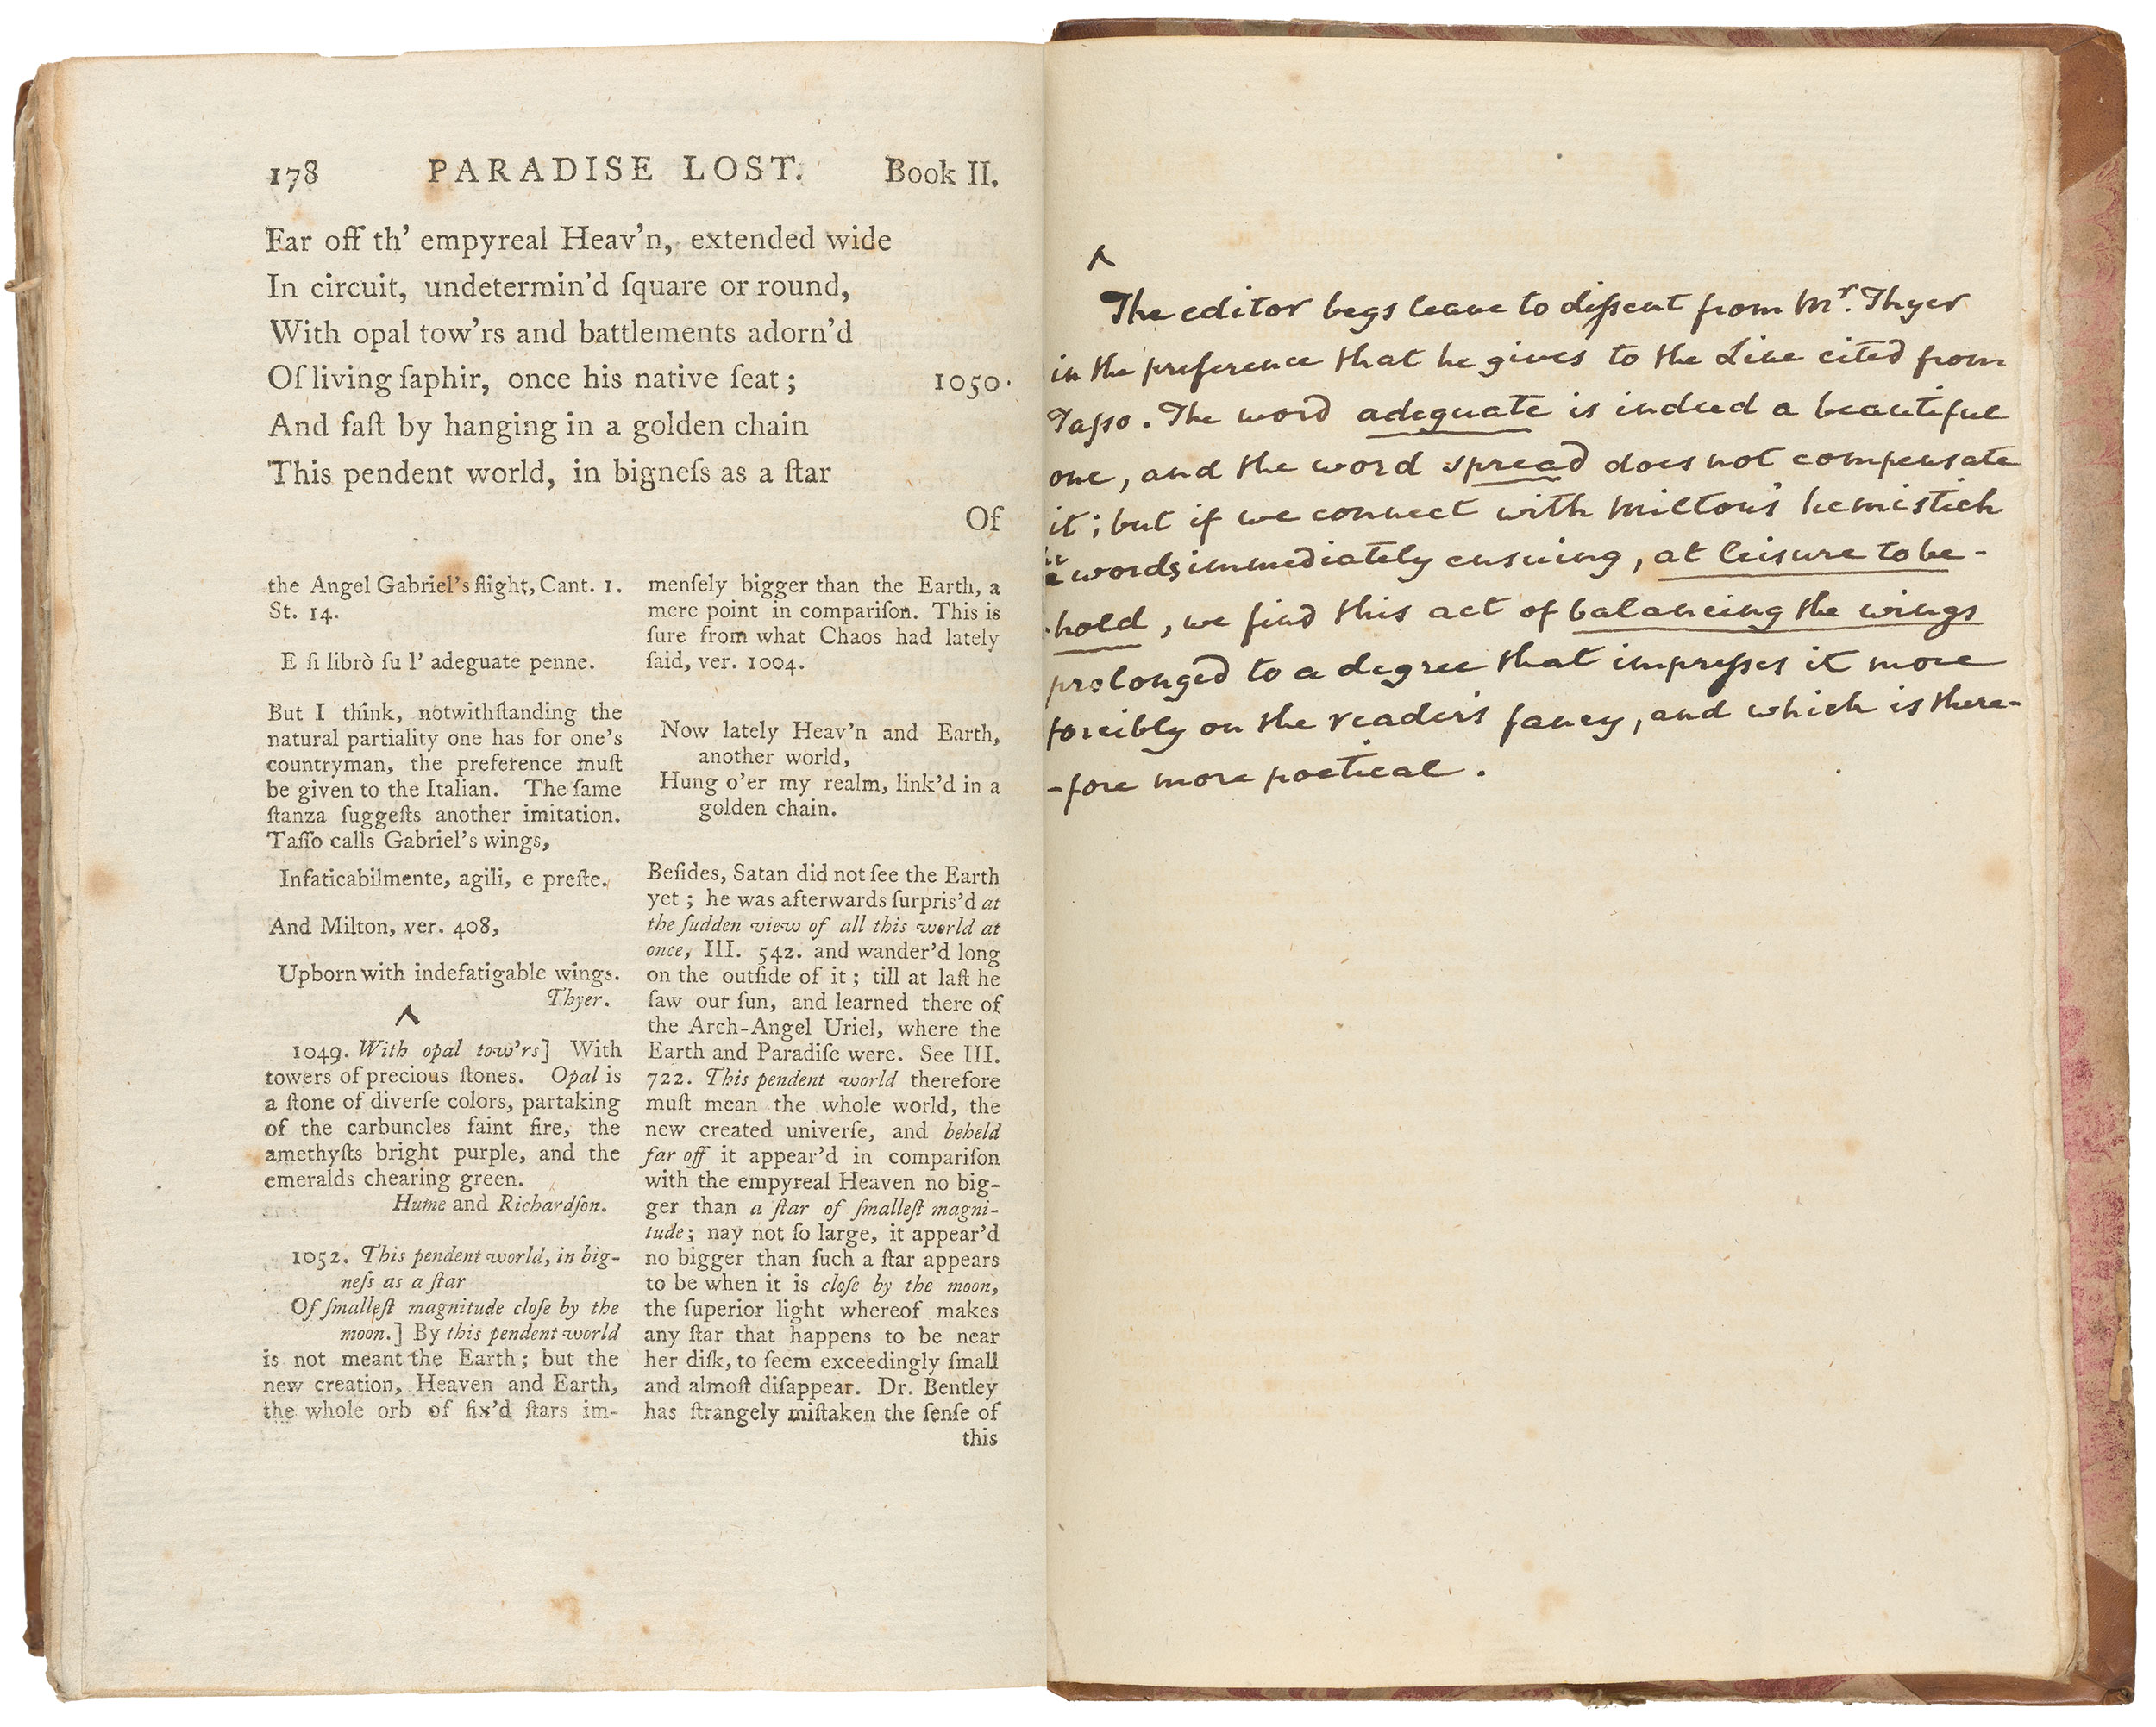 178 PARADISE LOST. Book II.
Far off th' empyreal Heav'n, extended wide
In circuit, undetermin'd ſquare or round,
With opal tow'rs and battlements adorn'd
Of living ſaphir, once his native ſeat; 1050.
And faſt by hanging in a golden chain
This pendent world, in bigneſs as a ſtar
Of
the Angel Gabriel's flight, Cant. 1.
St. 14.
E ſi librò ſu l' adeguate penne.
But I think, notwithſtanding the
natural partiality one has for one's
countryman, the preference muſt
be given to the Italian. The ſame
ſtanza ſuggeſts another imitation.
Taſſo calls Gabriel's wings,
Infaticabilmente, agili, e preſte.
And Milton, ver. 408,
Upborn with indefatigable wings.
Thyer.
^
1049. With opal tow'rs] With
towers of precious ſtones. Opal is
a ſtone of diverſe colors, partaking
of the carbuncles faint fire, the
amethyſts bright purple, and the
emeralds chearing green.
Hume and Richardſon.
1052. This pendent world, in big-
neſs as a ſtar
Of ſmalleſt magnitude cloſe by the
moon.] By this pendent world
is not meant the Earth; but the
new creation, Heaven and Earth,
the whole orb of fix'd ſtars im-
menſely bigger than the Earth, a
mere point in compariſon. This is
ſure from what Chaos had lately
ſaid, ver. 1004.
Now lately Heav'n and Earth,
another world,
Hung o'er my realm, link'd in a
golden chain.
Beſides, Satan did not ſee the Earth
yet; he was afterwards ſurpris'd at
the ſudden view of all this world at
once, III. 542. and wander'd long
on the outſide of it; till at laſt he
ſaw our ſun, and learned there of
the Arch-Angel Uriel, where the
Earth and Paradiſe were. See III.
722. This pendent world therefore
muſt mean the whole world, the
new created univerſe, and beheld
far off it appear'd in compariſon
with the empyreal Heaven no big-
ger than a ſtar of ſmalleſt magni-
tude; nay not ſo large, it appear'd
no bigger than ſuch a ſtar appears
to be when it is cloſe by the moon,
the ſuperior light whereof makes
any ſtar that happens to be near
her diſk, to ſeem exceedingly ſmall
and almoſt diſappear. Dr. Bentley
has ſtrangely miſtaken the ſenſe of
this
^
The editor begs leave to diſsent from Mr. Thyer
in the preference that he gives to the Line cited from
Taſso. The word adequate is indeed a beautiful
one, and the word spread does not compensate
it; but if we connect with Milton's hemistich
words immediately ensuing, at leisure to be-
-hold, we find this act of balancing the wings
prolonged to a degree that impreſses it more
forcibly on the reader's fancy, and which is there-
-fore more poetical.